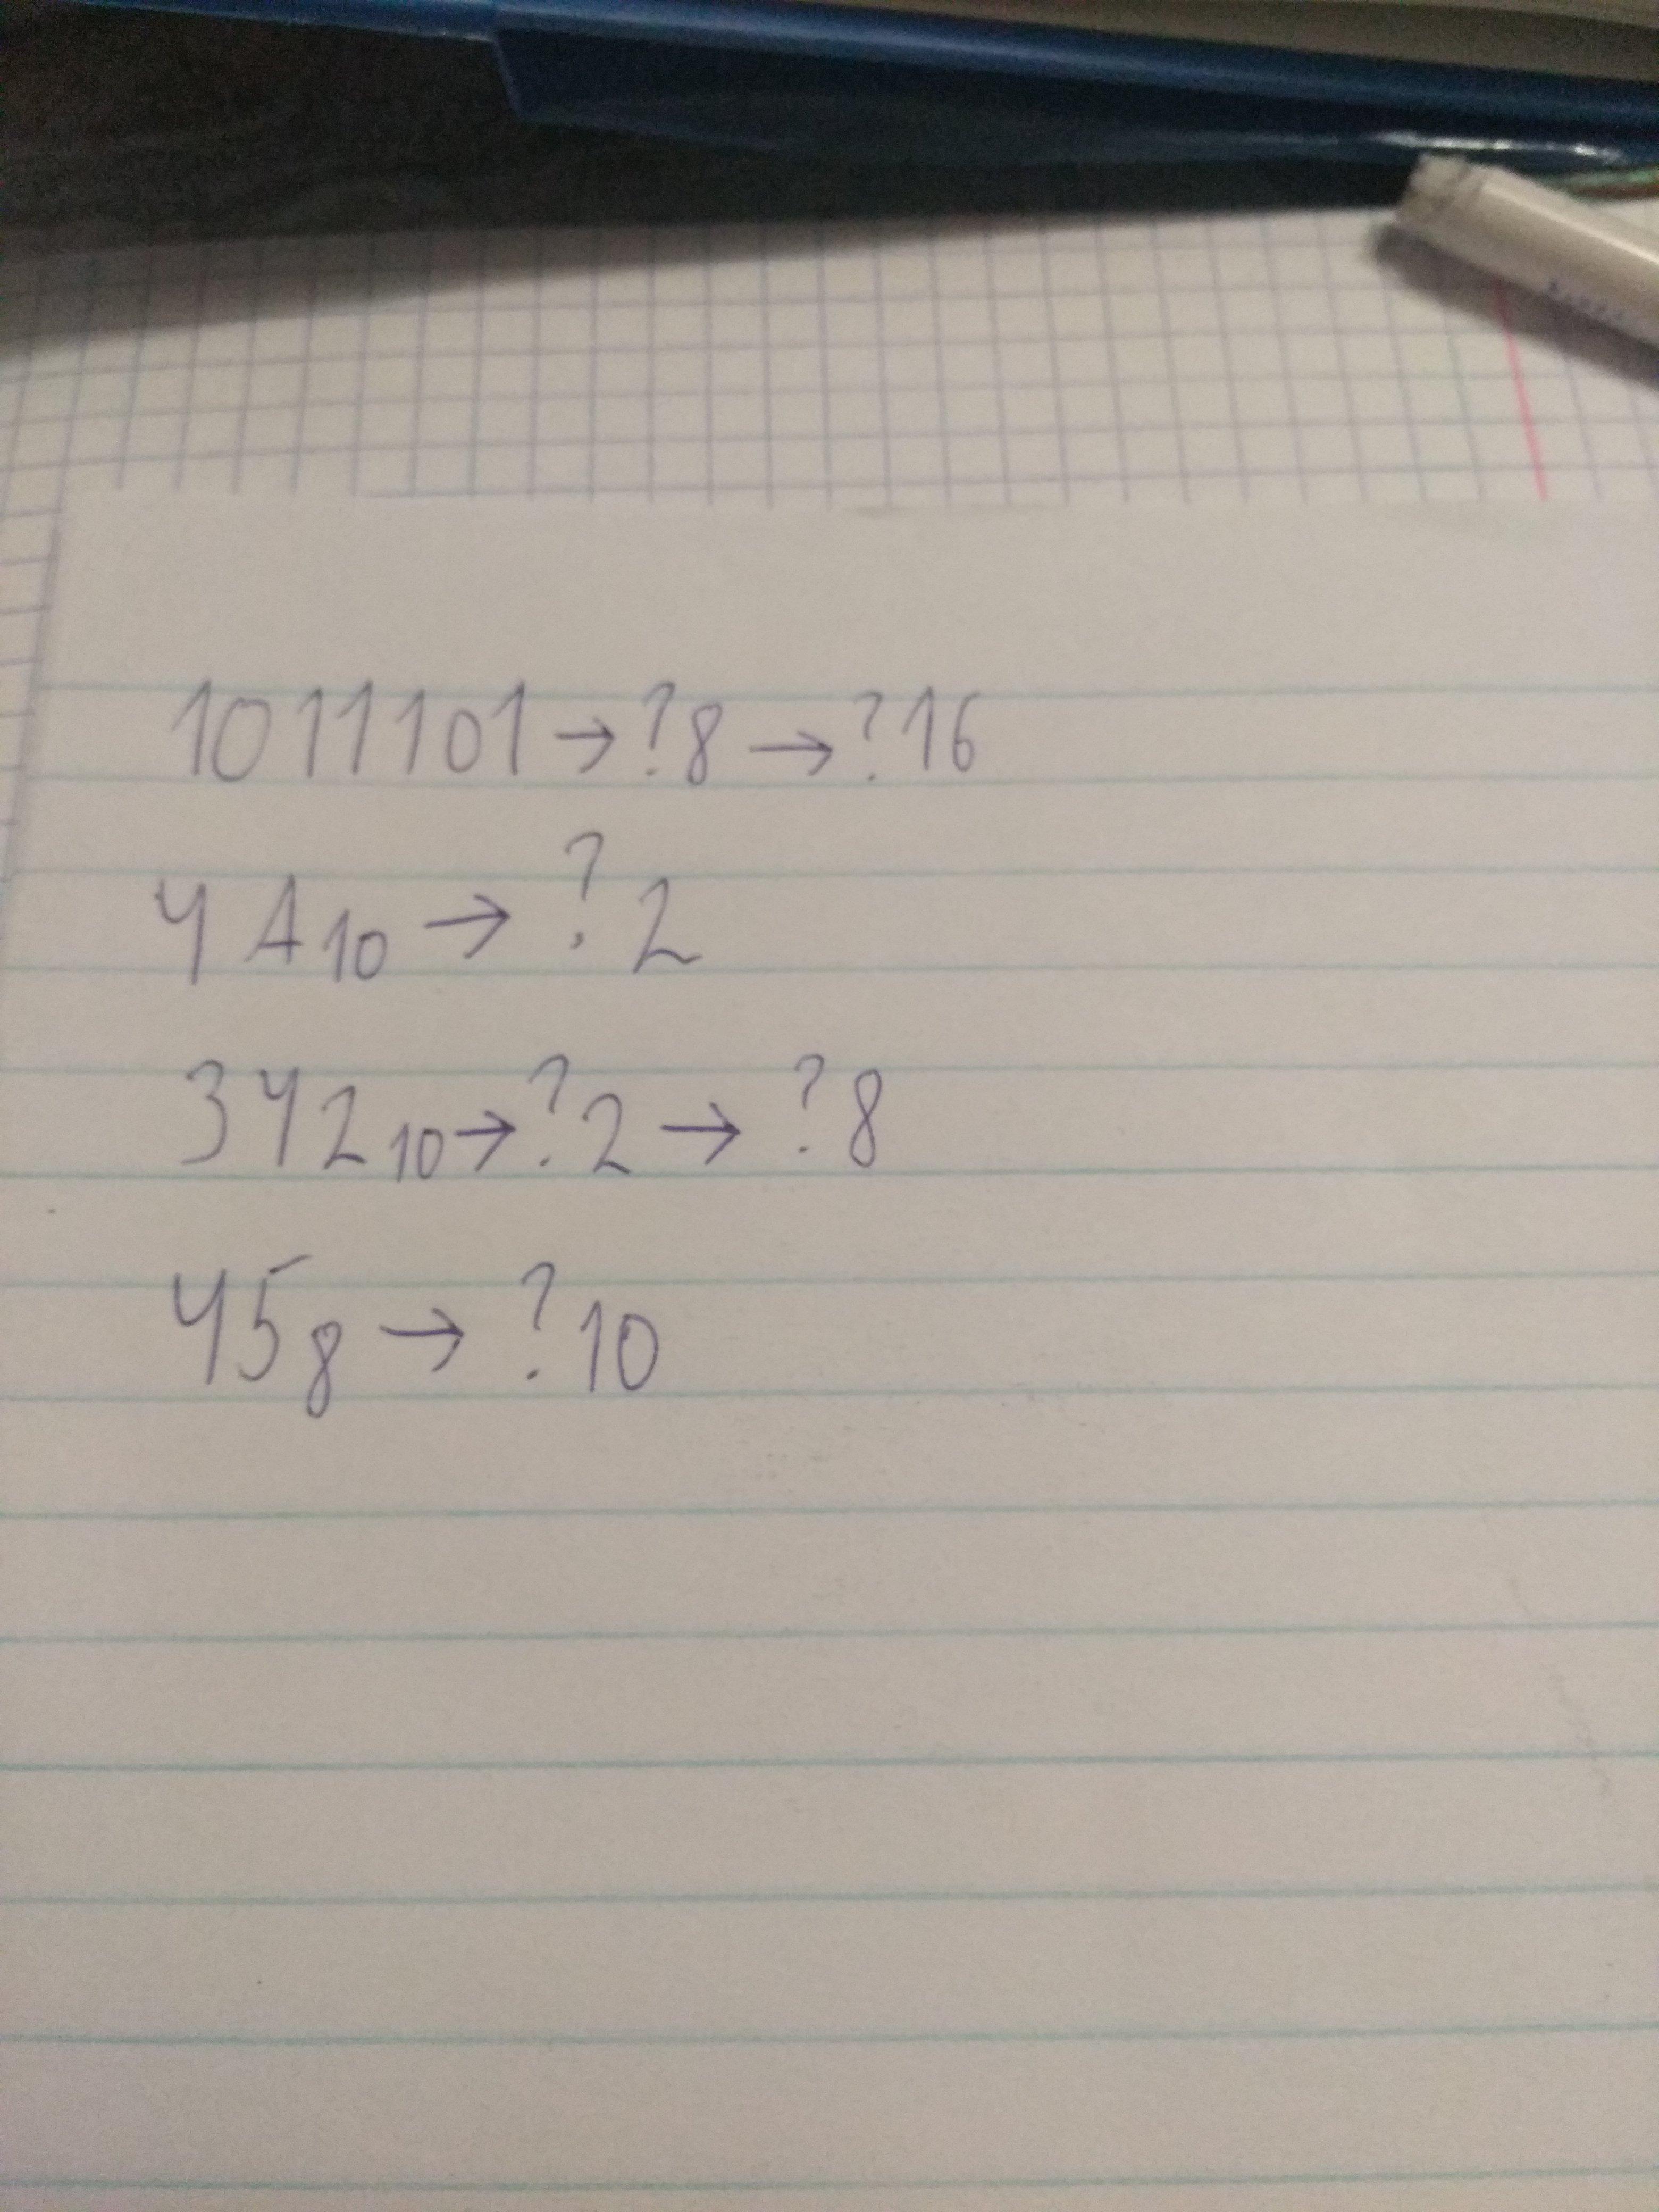 1011101→?8→?16
4A₁₀→?2
342₁₀→?2→?8
45₈→?10